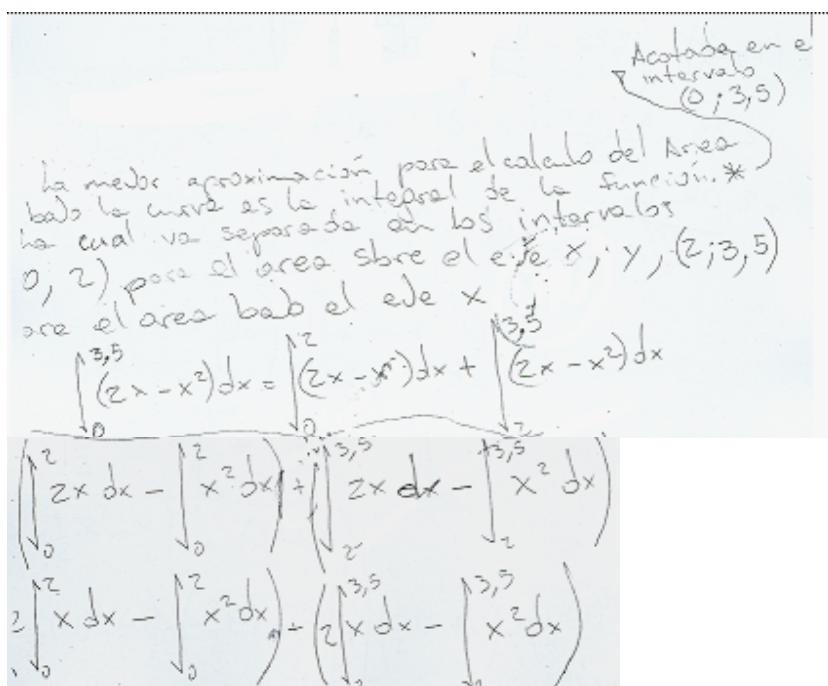 Acotada en el
intervalo
(0 ; 3,5)
La mejor aproximación para el calculo del Area
bajo la curva es la integral de la función.*
La cual va separada en los intervalos
0, 2) para el area sbre el eje x, y, (2;3,5)
ara el area bajo el eje x
∫₀^3,5 (2x - x²)dx = ∫₀^2 (2x - x²)dx + ∫₂^3,5 (2x - x²)dx
(∫₀^2 2x dx - ∫₀^2 x² dx) + (∫₂^3,5 2x dx - ∫₂^3,5 x² dx)
2∫₀^2 x dx - ∫₀^2 x² dx) - (2∫₂^3,5 x dx - ∫₂^3,5 x² dx)